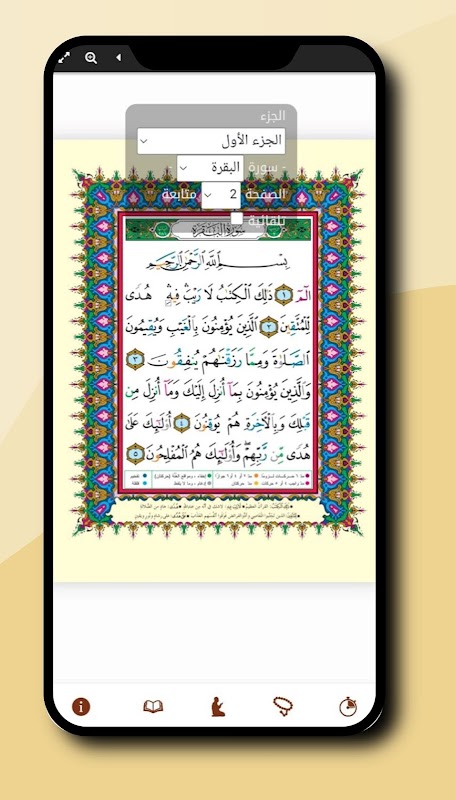 الجزء
الجزء الأول
- سورة البقرة -
الصفحة 2 متابعة
تلقائية
سورة البقرة
بسم الله الرحمن الرحيم
الٓمٓ ١ ذَٰلِكَ ٱلْكِتَٰبُ لَا رَيْبَ ۛ فِيهِ ۛ هُدًى
لِّلْمُتَّقِينَ ٢ ٱلَّذِينَ يُؤْمِنُونَ بِٱلْغَيْبِ وَيُقِيمُونَ
ٱلصَّلَوٰةَ وَمِمَّا رَزَقْنَٰهُمْ يُنفِقُونَ ٣
وَٱلَّذِينَ يُؤْمِنُونَ بِمَآ أُنزِلَ إِلَيْكَ وَمَآ أُنزِلَ مِن
قَبْلِكَ وَبِٱلْءَاخِرَةِ هُمْ يُوقِنُونَ ٤ أُو۟لَٰٓئِكَ عَلَىٰ
هُدًى مِّن رَّبِّهِمْ ۖ وَأُو۟لَٰٓئِكَ هُمُ ٱلْمُفْلِحُونَ ٥